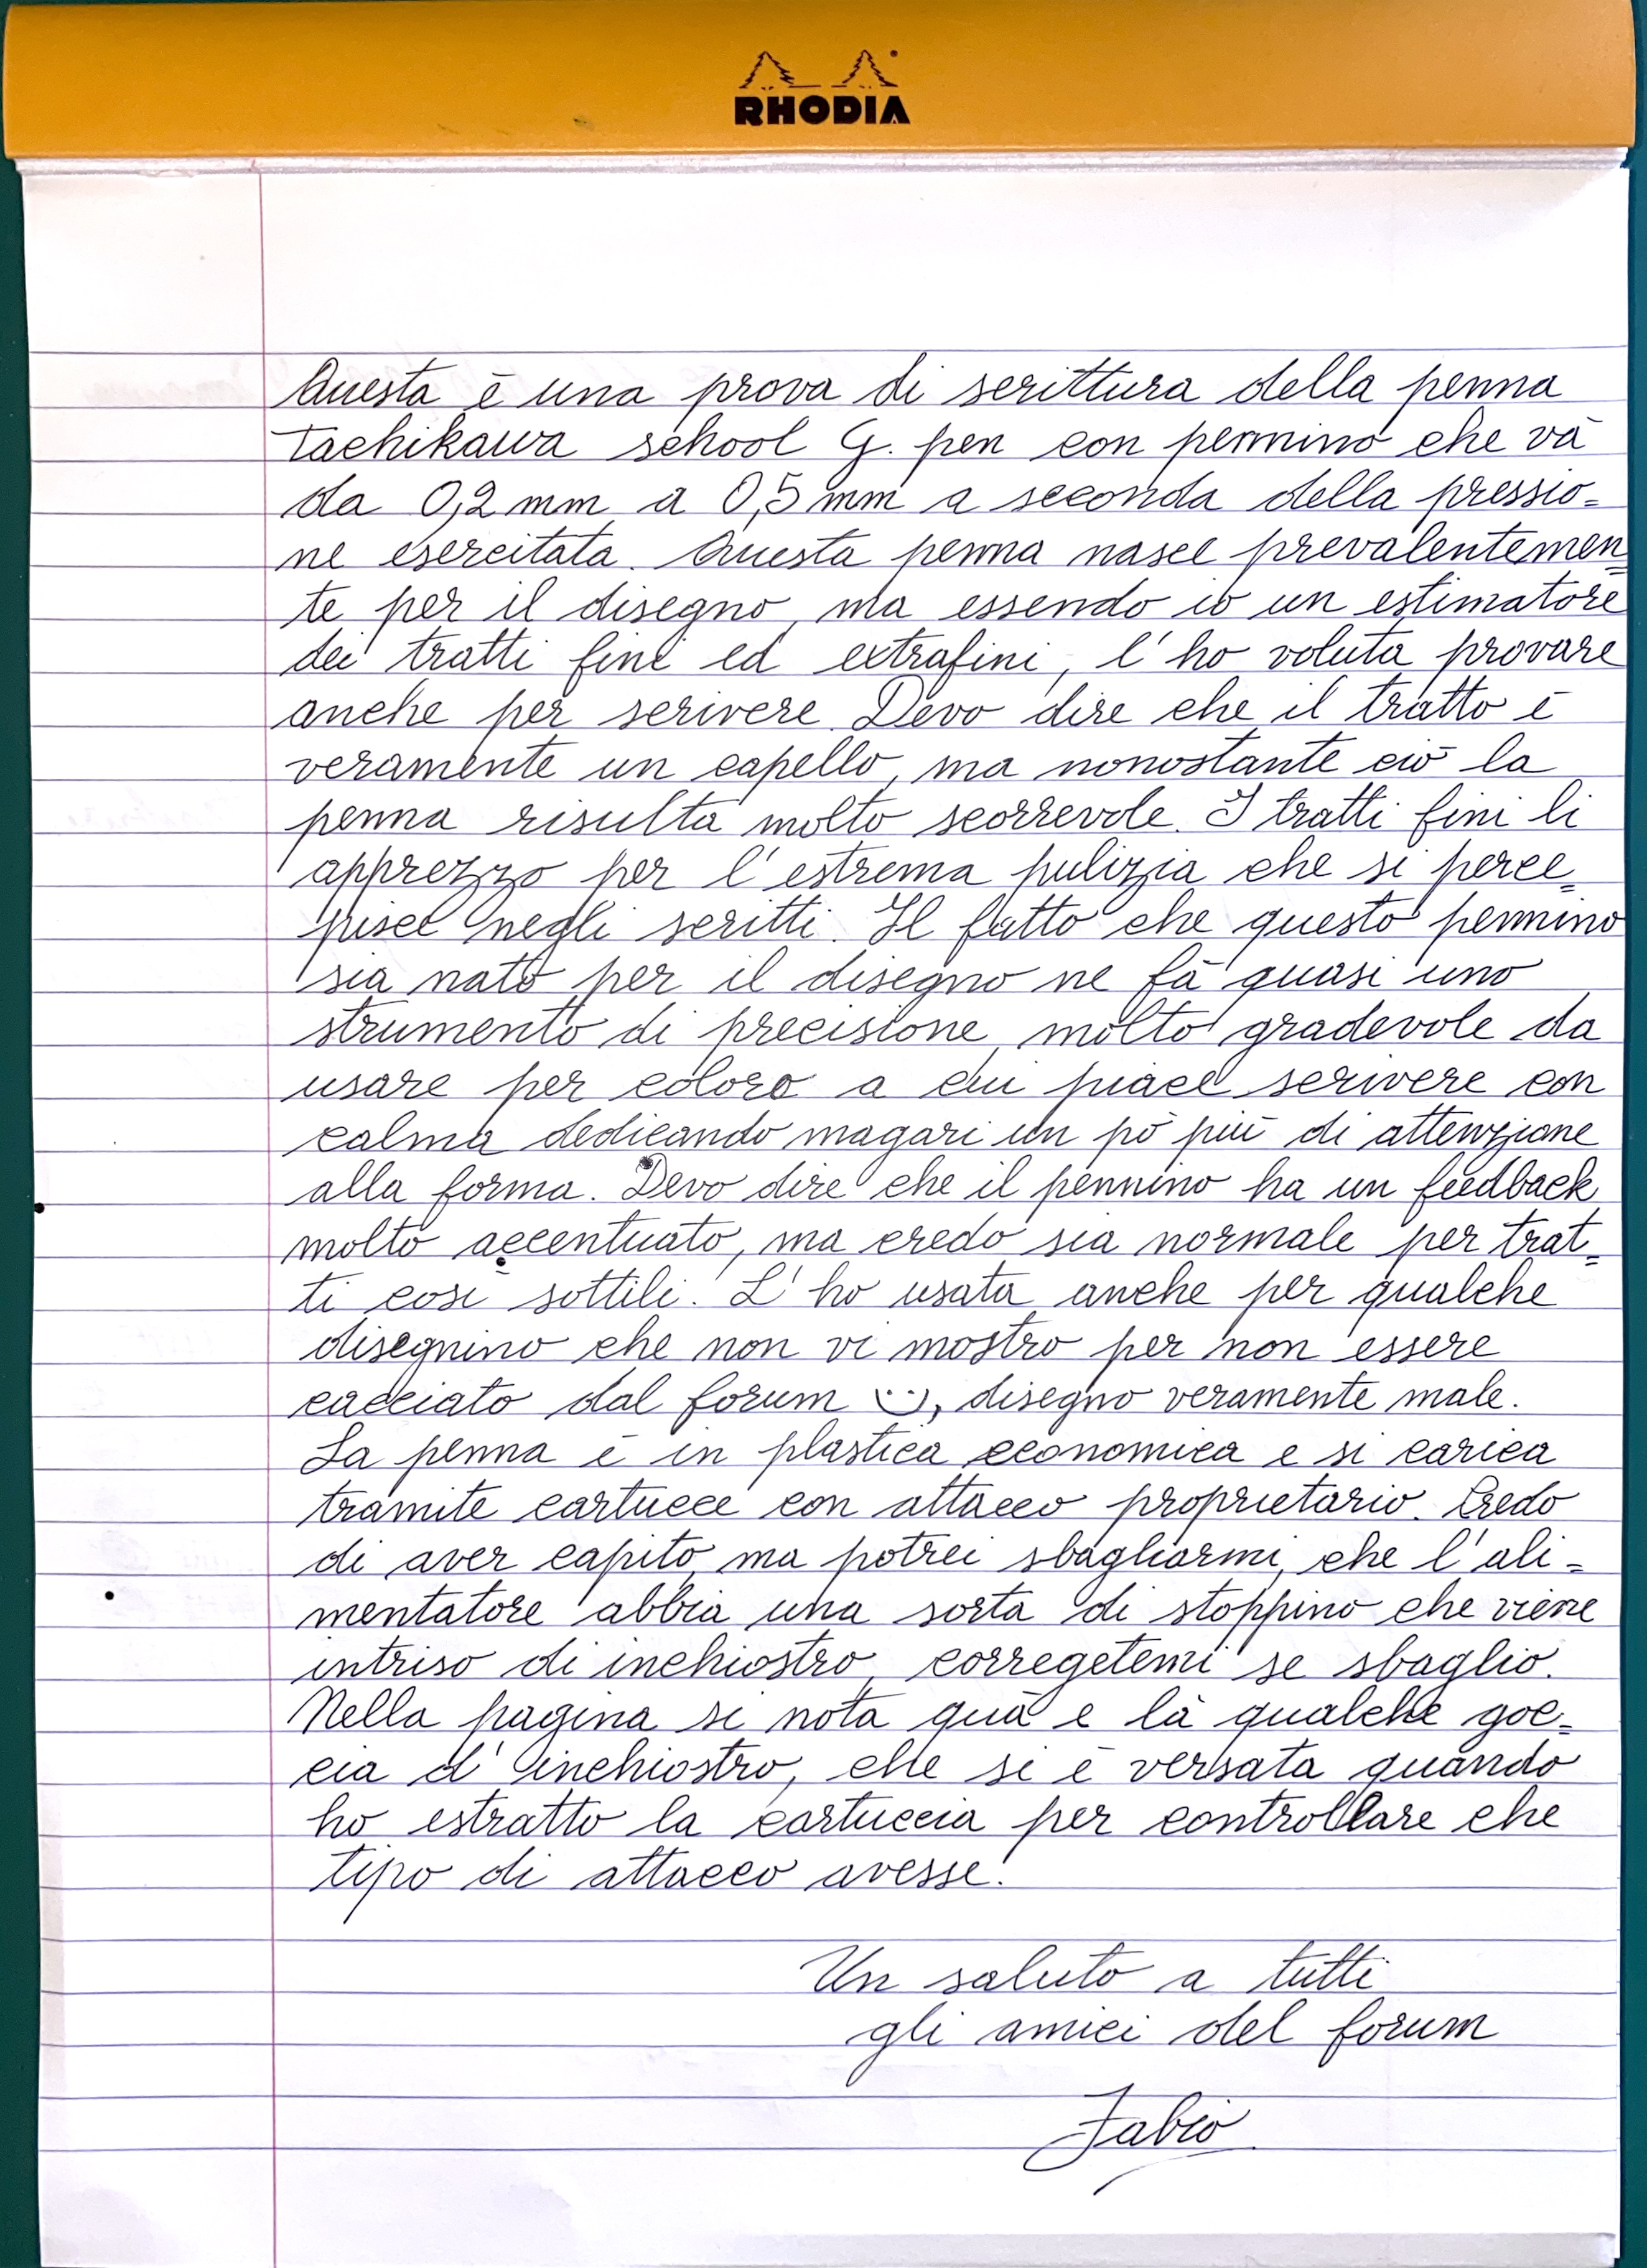 RHODIA
Questa è una prova di scrittura della penna
Tachikawa school G. pen con pennino che và
da 0,2 mm a 0,5 mm a seconda della pressio=
ne esercitata. Questa penna nasce prevalentemen=
te per il disegno, ma essendo io un estimatore
dei tratti fini ed extrafini, l'ho voluta provare
anche per scrivere. Devo dire che il tratto è
veramente un capello, ma nonostante ciò la
penna risulta molto scorrevole. I tratti fini li
apprezzo per l'estrema pulizia che si perce=
pisce negli scritti. Il fatto che questo pennino
sia nato per il disegno ne fà quasi uno
strumento di precisione, molto gradevole da
usare per coloro a cui piace scrivere con
calma dedicando magari un pò più di attenzione
alla forma. Devo dire che il pennino ha un feedback
molto accentuato, ma credo sia normale per trat=
ti così sottili. L'ho usata anche per qualche
disegnino che non vi mostro per non essere
cacciato dal forum :-), disegno veramente male.
La penna è in plastica economica e si carica
tramite cartucce con attacco proprietario. Credo
di aver capito, ma potrei sbagliarmi, che l'ali=
mentatore abbia una sorta di stoppino che viene
intriso di inchiostro, corregetemi se sbaglio.
Nella pagina si nota quà e là qualche goc=
cia d'inchiostro, che si è versata quando
ho estratto la cartuccia per controllare che
tipo di attacco avesse.
Un saluto a tutti
gli amici del forum
Fabio